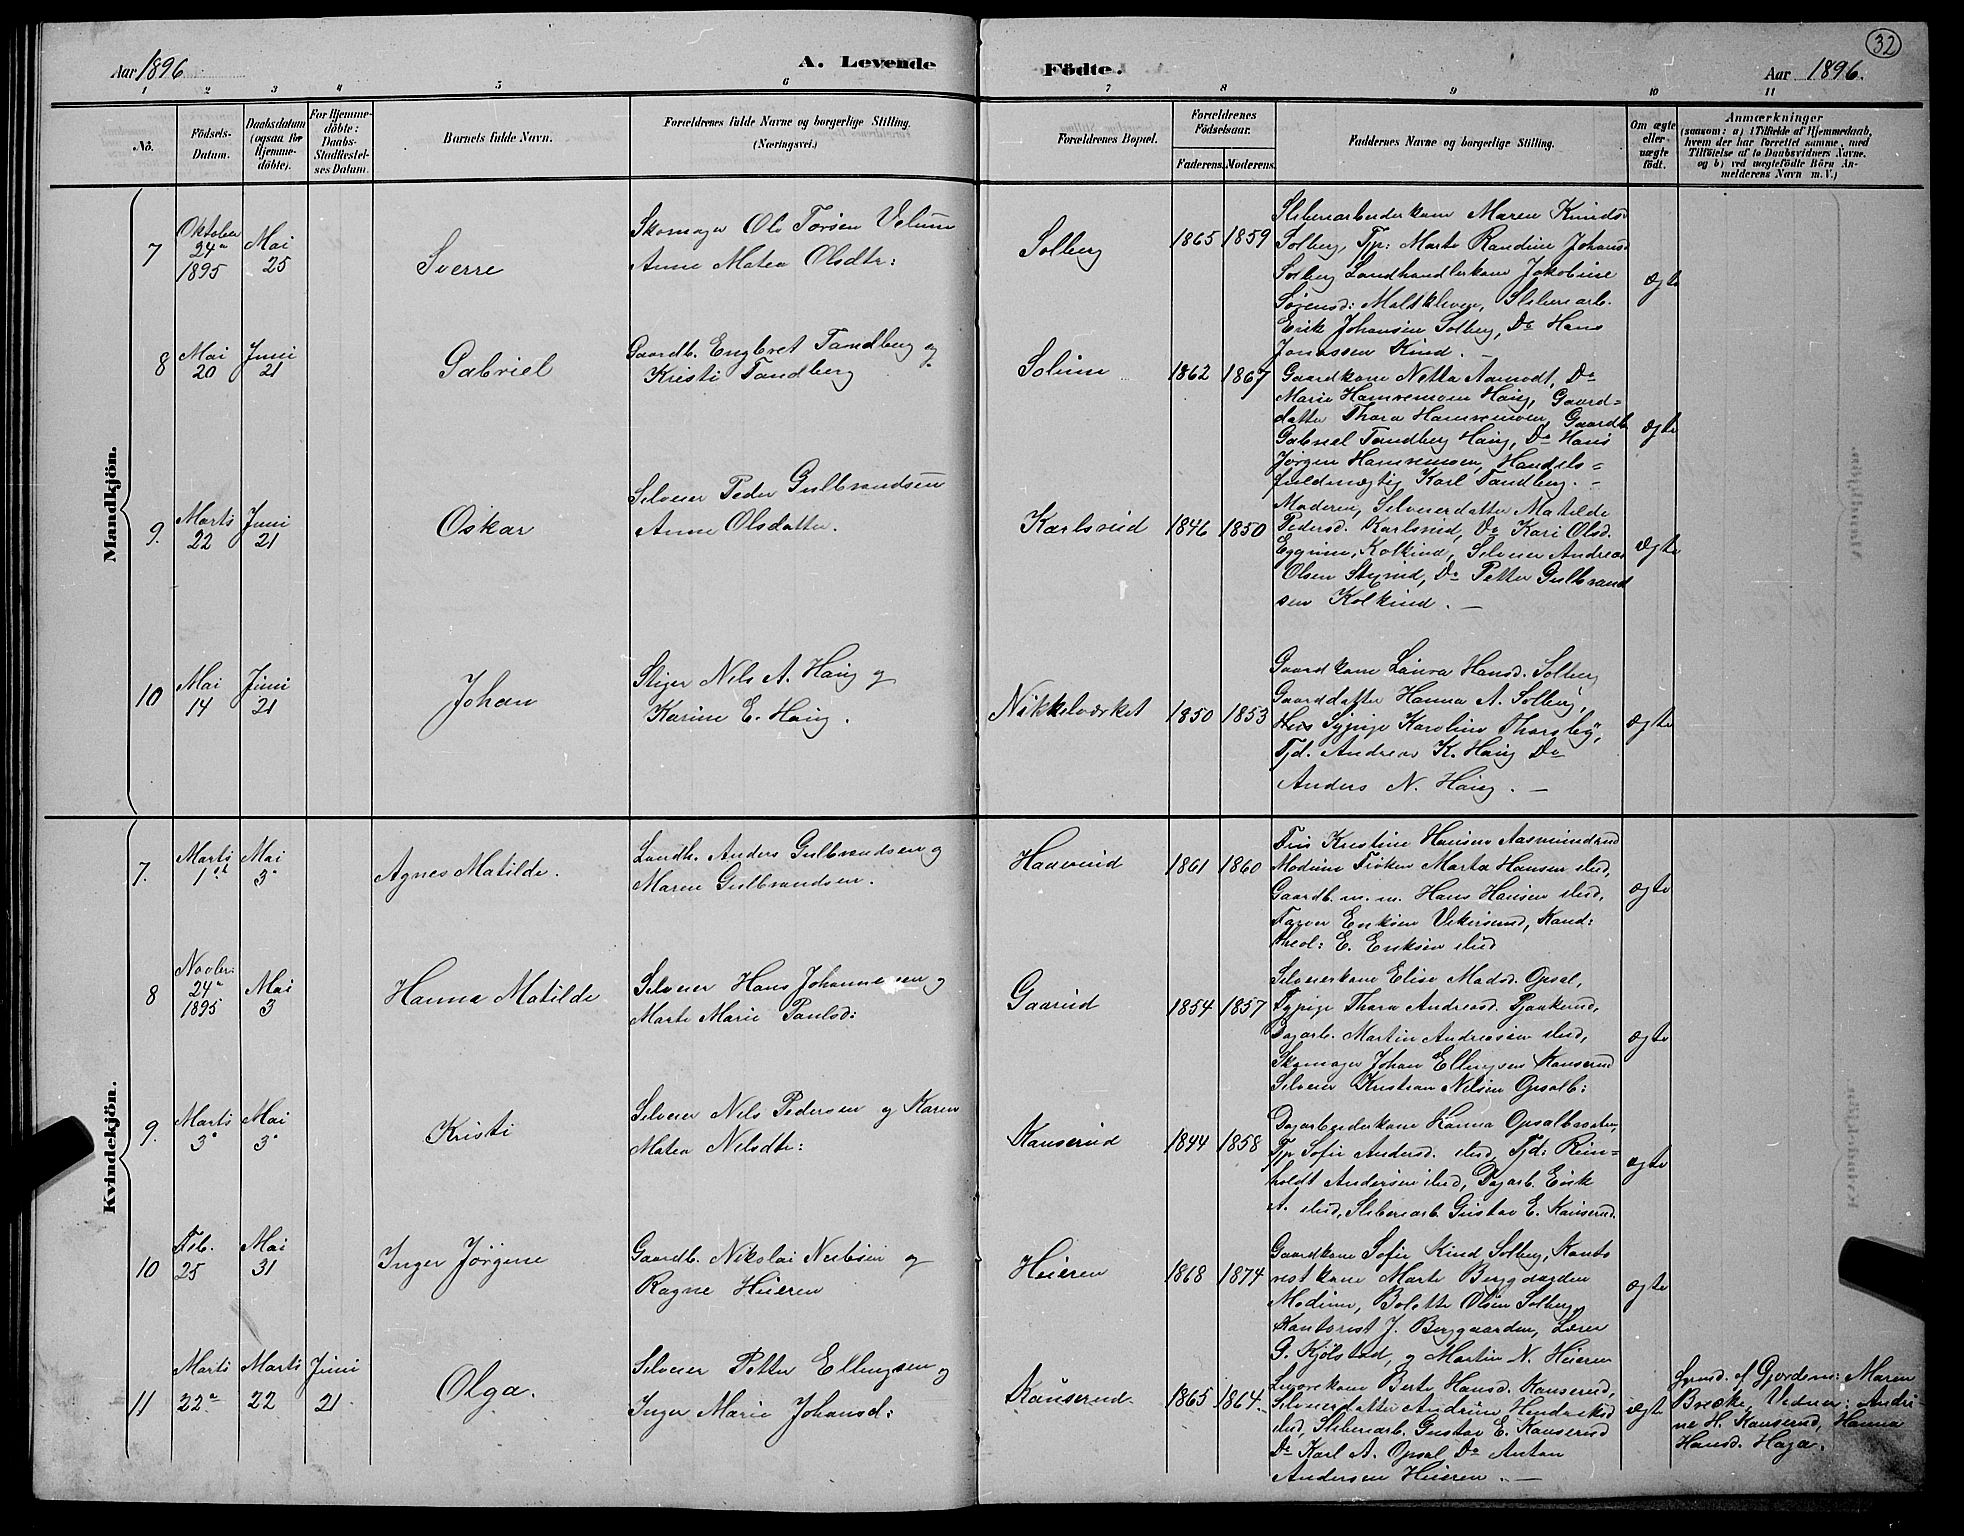 32
Aar 1896
A. Levende
Födte.
Aar 1896.
1 2 3 4 5 6 7 8 9 10 11
No.
Födsels-
Datum.
Daabsdatum
(ogsaa for
Hjemme-
döbte).
For Hjemme-
döbte:
Daabs-
Stadfæstel-
ses Datum.
Barnets fulde Navn.
Forældrenes fulde Navne og borgerlige Stilling.
(Næringsvei.)
Forældrenes Bopæl.
Forældrenes
Födselsaar.
Faderens. Moderens.
Faddernes Navne og borgerlige Stilling.
Om ægte
eller
uægte
födt.
Anmærkninger
(saasom: a) i Tilfælde af Hjemmedaab,
hvem der har forrettet samme, med
Tilföielse af to Daabsvidners Navne.
og b) ved uægtefödte Börn An-
melderens Navn m. V.)
Mandkjön.
7
Oktober
24de
1895
Mai
25
Sverre
Skomager Ole Torsen Velum
Anne Matea Olsdtr:
Solberg
1865 1859
Sliberiarbeiderkone Maren Kinds
Solberg, Tp: Marte Randine Johans
Solberg Landhandlerkone Jakobine
Sörensd: Maltkleven, Sliberiarb.
Erik Johansen Solberg, Do Hans
Jonassen Kind. —
ægte
8
Mai
20
Juni
21
Gabriel
Gaardb. Engbret Tandberg og
Kristi Tandberg
Solum
1862 1867
Gaardkone Netta Aamodt, Do
Marie Hamremoen Haug, Gaard=
datter Thora Hamremoen, Gaardb.
Gabriel Tandberg Haug, Do Hans
Jørgen Hamremoen, Handels=
fuldmægtig Karl Tandberg. —
ægte
9.
Marts
22
Juni
21
Oskar
Selveier Peder Gulbrandsen
Anne Olsdatter.
Karlsrud
1846 1850
Moderen, Selveierdatter Matilde
Pedersd. Karlsrud, Do Kari Olsd.
Eggum, Kolkind, Selveier Andreas
Olsen Stxrud, Do Petter Gulbrand
sen Kolkind. —
ægte
10
Mai
14
Juni
21
Johan
Stiger Nels A. Haug og
Karine E. Haug.
Nikkelværket
1850 1853
Gaardkone Laura Hansd. Solberg
Gaarddatter Hanna A. Solberg,
Sypige Karoline Thorsby,
Tjd. Andreas K. Haug Do
Anders N. Haug. —
ægte
Kvindekjön.
7.
Marts
1ste
Mai
3
Agnes Matilde.
Landh. Anders Gulbrandsen og
Maren Gulbrandsen.
Haavrud
1861 1860
Fru Kristine Hansen Aasmundrud
Modum Frøken Marta Hansen ibid,
Gaardb. m. m. Hans Hansen ibid,
Farver Eriksen Vikersund, Kand:
theol: E. Eriksen ibid
ægte
8
Novbr:
24de
1895
Mai
3
Hanna Matilde
Selveier Hans Johannesen og
Marte Marie Paulsd:
Gaarud
1854 1857
Selveierkone Elise Madsd. Opsal,
Sypige Thora Andreasd. Tjaakerud,
Dagarb. Martin Andreasen ibid,
Skomager Johan Ellingsen Kanserud
Selveier Kristian Nilsen Opsalb:
ægte
9.
Marts
3
Mai
3
Kristi
Selveier Nels Pedersen og Karen
Matea Nelsdtr:
Kanserud
1844 1858
Dagarbeiderkone Hanna Opsalbraaten,
Tp Sofie Andersd. ibid, Tjd: Rein=
holdt Andersen ibid, Dagarb. Erik
A. ibid, Sliberiarb. Gustav E. Kanserud.
ægte
10
Feb.
25
Mai
31
Inger Jörgine
Gaardb. Nikolai Neubsen og
Ragne Heieren
Heieren
1868 1874
Gaardkone Sofie Kind Solberg, Kanto
rist kone Marte Berggaarden
Modum, Bolette Olsen Solberg,
Kantorist J. Berggaarden, Lærer
G. Kjölstad, og Martin N. Heieren
ægte
11
Marts
22de
Marts
22
Juni
21
Olga.
Selveier Petter Ellingsen og
Inger Marie Johansd:
Kanserud
1865 1864.
kone Berte Hansd. Kanserud,
Selveierdatter Andrine Hendriksd
ibid, Sliberiarb. Gustav E. Kanserud
Do Karl A. Opsal Do Anton
Andersen Heieren. —
ægte
Hjemd. af Gjordem: Maren
Brække, Vidner: Andri-
ne H. Kanserud, Hanna
Hansd. Haga.